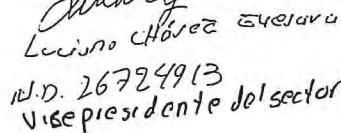 Luciano CHávez Guevara
N.D. 26724913
Visepresidente del sector